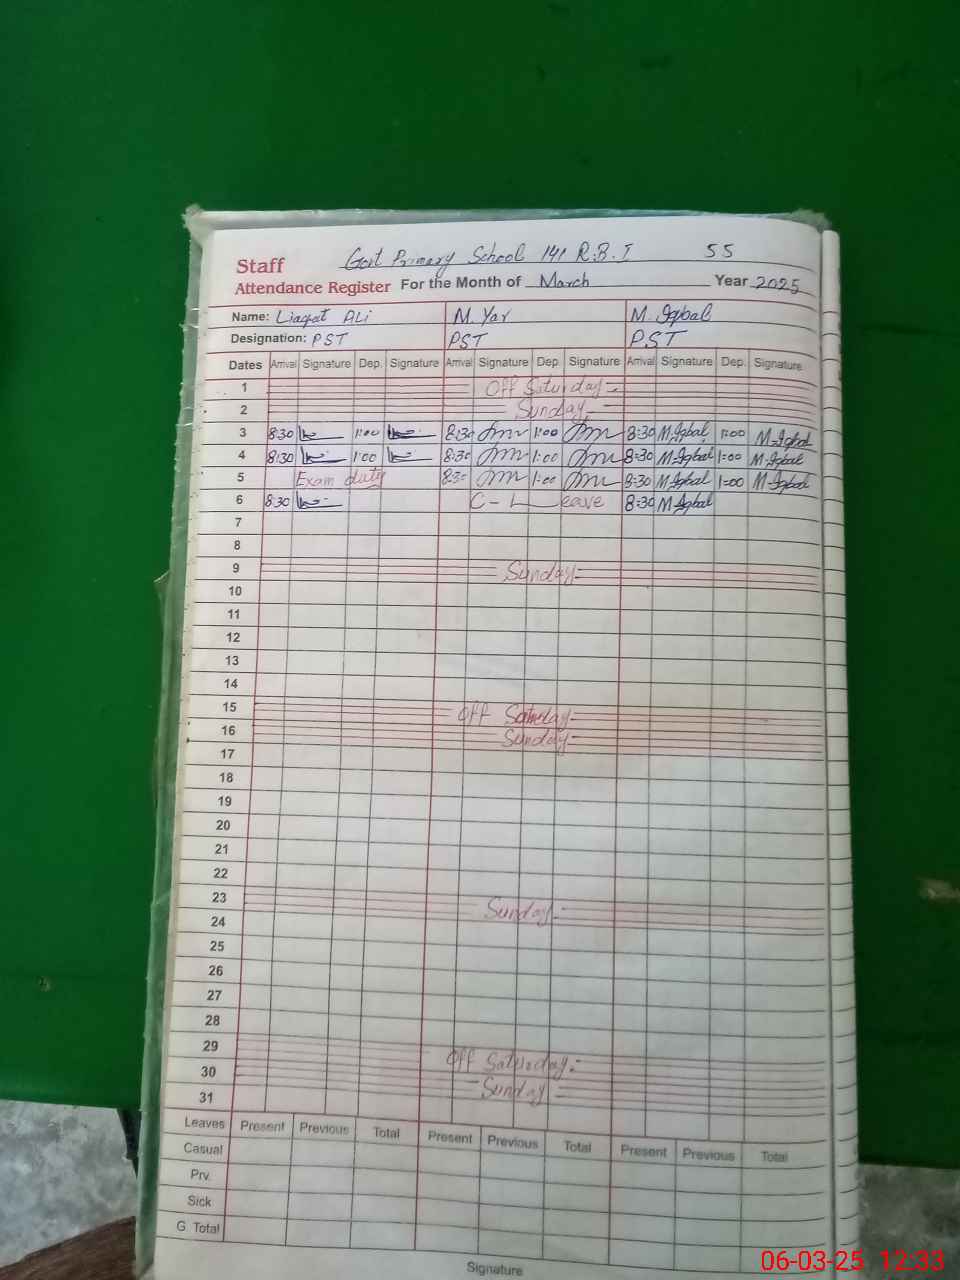 Govt Primary School 141 R.B.I 55
Staff
Attendance Register For the Month of March Year 2025
Name: Liaqat ALi M. Yar M. Iqbal
Designation: PST PST PST
Dates Arrival Signature Dep. Signature Arrival Signature Dep. Signature Arrival Signature Dep. Signature
1 Off Saturday
2 Sunday
3 8:30 1:00 8:30 1:00 8:30 M.Iqbal 1:00 M.Iqbal
4 8:30 1:00 8:30 1:00 8:30 M.Iqbal 1:00 M.Iqbal
5 Exam duty 8:30 1:00 8:30 M.Iqbal 1:00 M.Iqbal
6 8:30 C-Leave 8:30 M.Iqbal
7
8
9 Sunday
10
11
12
13
14
15 Off Saturday
16 Sunday
17
18
19
20
21
22
23 Sunday
24
25
26
27
28
29 Off Saturday
30 Sunday
31
Leaves Present Previous Total Present Previous Total Present Previous Total
Casual
Prv.
Sick
G Total
Signature
06-03-25 12:33